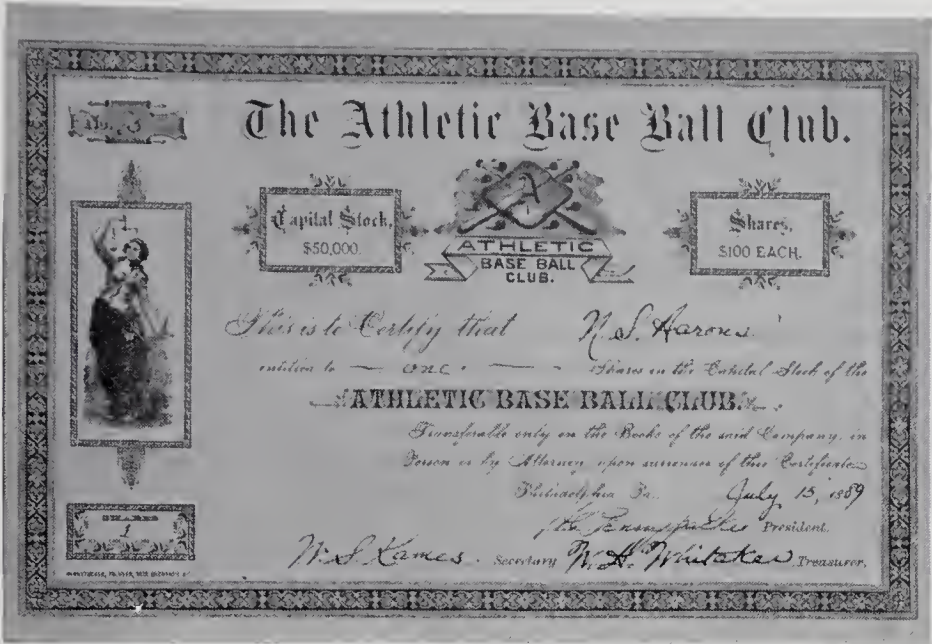 The Athletic Base Ball Club.
Capital Stock,
$50,000.
A
ATHLETIC
BASE BALL
CLUB.
Shares,
$100 EACH.
This is to Certify that N. S. Aarons
entitled to one Shares in the Capital Stock of the
ATHLETIC BASE BALL CLUB.
Transferable only on the Books of the said Company in
Person or by Attorney upon surrender of this Certificate
Philadelphia Pa. July 15, 1889
H. C. Pennypacker President.
W. S. Kames. Secretary W. H. Whitaker Treasurer.
1